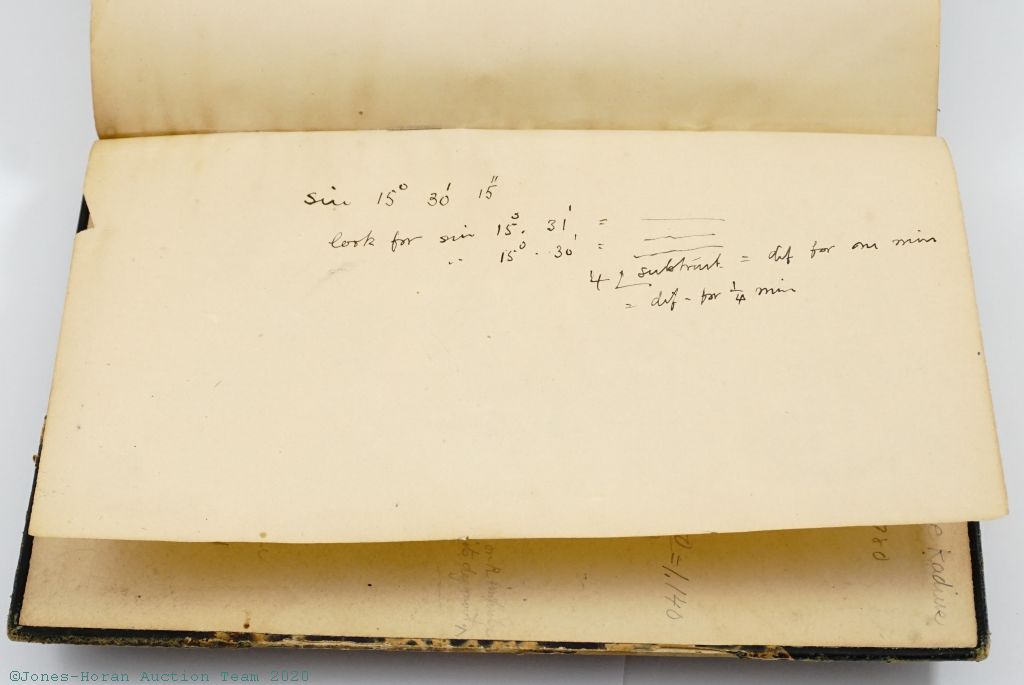 sin 15° 30' 15"
look for sin 15°. 31' =
" 15° .. 30' =
4 subtract = dif for one min
= dif - for 1/4 min
=1.140
780
e Radius
©Jones-Horan Auction Team 2020